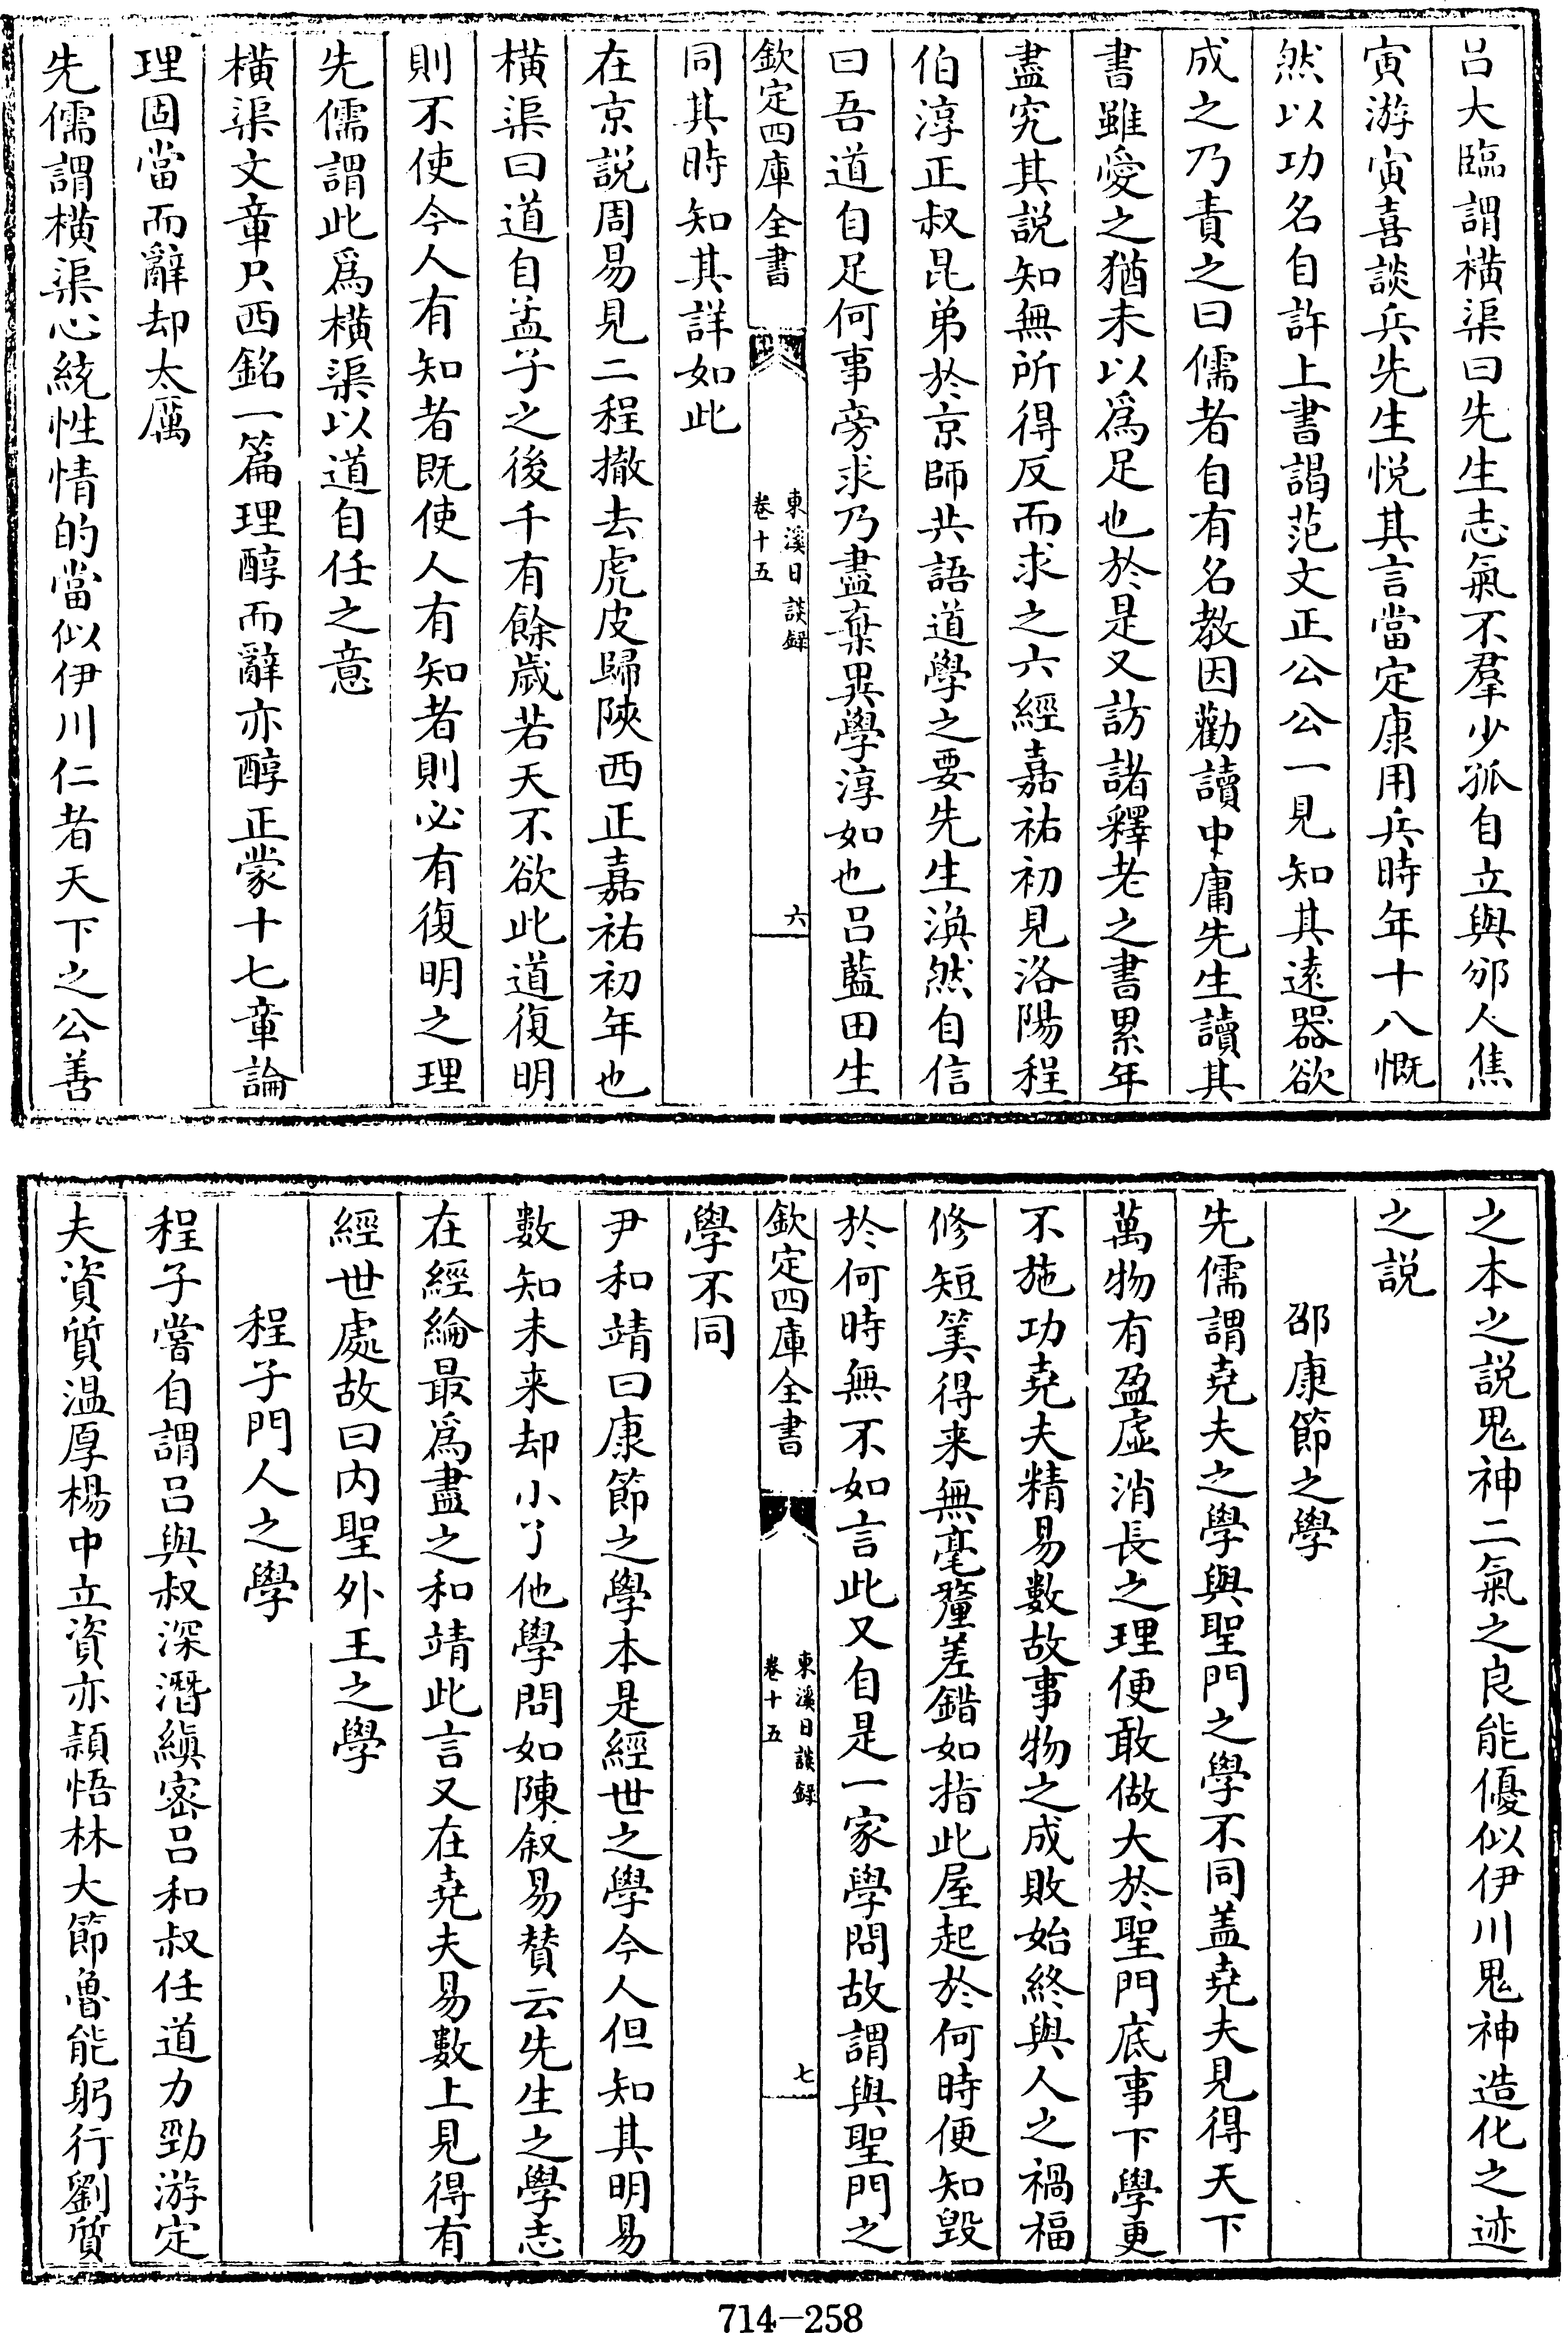 呂大臨謂橫渠曰先生志氣不羣少孤自立與邠人焦
寅游寅喜談兵先生悦其言當定康用兵時年十八慨
然以功名自許上書謁范文正公公一見知其遠器欲
成之乃責之曰儒者自有名教因勸讀中庸先生讀其
書雖愛之猶未以爲足也於是又訪諸釋老之書累年
盡究其説知無所得反而求之六經嘉祐初見洛陽程
伯淳正叔昆弟於京師共語道學之要先生渙然自信
曰吾道自足何事旁求乃盡棄異學淳如也吕藍田生
欽定四庫全書
東溪日談録
卷十五
六
同其時知其詳如此
在京説周易見二程撤去虎皮歸陝西正嘉祐初年也
橫渠曰道自孟子之後千有餘歲若天不欲此道復明
則不使今人有知者既使人有知者則必有復明之理
先儒謂此爲橫渠以道自任之意
橫渠文章只西銘一篇理醇而辭亦醇正蒙十七章論
理固當而辭却太厲
先儒謂橫渠心統性情的當似伊川仁者天下之公善
之本之説鬼神二氣之良能優似伊川鬼神造化之迹
之説
邵康節之學
先儒謂堯夫之學與聖門之學不同盖堯夫見得天下
萬物有盈虛消長之理便敢做大於聖門底事下學更
不施功堯夫精易數故事物之成敗始終與人之禍福
修短筭得来無毫釐差錯如指此屋起於何時便知毁
於何時無不如言此又自是一家學問故謂與聖門之
欽定四庫全書
東溪日談録
卷十五
七
學不同
尹和靖曰康節之學本是經世之學今人但知其明易
數知未来却小了他學問如陳叙易賛云先生之學志
在經綸最爲盡之和靖此言又在堯夫易數上見得有
經世處故曰内聖外王之學
程子門人之學
程子嘗自謂吕與叔深潛縝密吕和叔任道力勁游定
夫資質温厚楊中立資亦頴悟林大節魯能躬行劉質
714-258